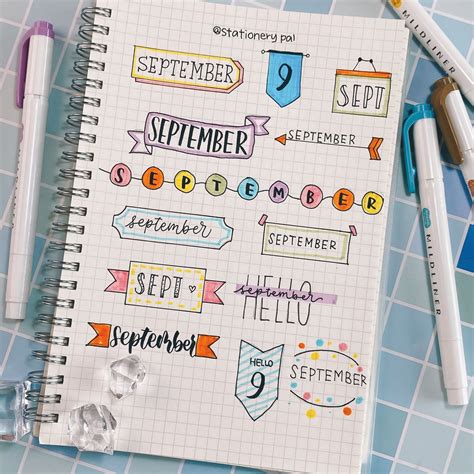 @stationery pal
SEPTEMBER
9
SEPT
SEPTEMBER
SEPTEMBER
SEPTEMBER
september
SEPTEMBER
SEPT
HELLO
september
september
HELLO
9
SEPTEMBER
MILDLINER
MILDLINER
MILDLINER